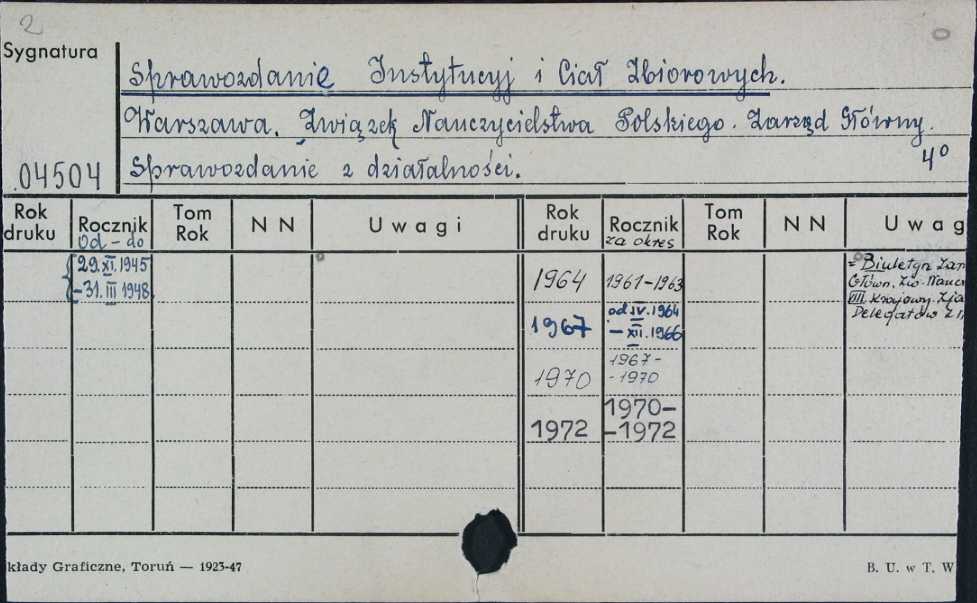 2
Sygnatura
Sprawozdanie Instytucyj i Ciał Zbiorowych.
Warszawa. Związek Nauczycielstwa Polskiego. Zarząd Główny.
.04504
Sprawozdanie z działalności.
4°
Rok druku
Rocznik od - do
Tom Rok
NN
Uwagi
Rok druku
Rocznik za okres
Tom Rok
NN
Uwag
29.XI.1945
-31.III 1948
1964
1961-1963
= Biuletyn Zar
Główn. Zw. Naucz
VIII. Krajowy Zja
Delegatów Z
1967
od IV. 1964
- XII. 1966
1970
1967-
-1970
1972
1970-
-1972
kłady Graficzne, Toruń — 1923-47
B. U. w T. W